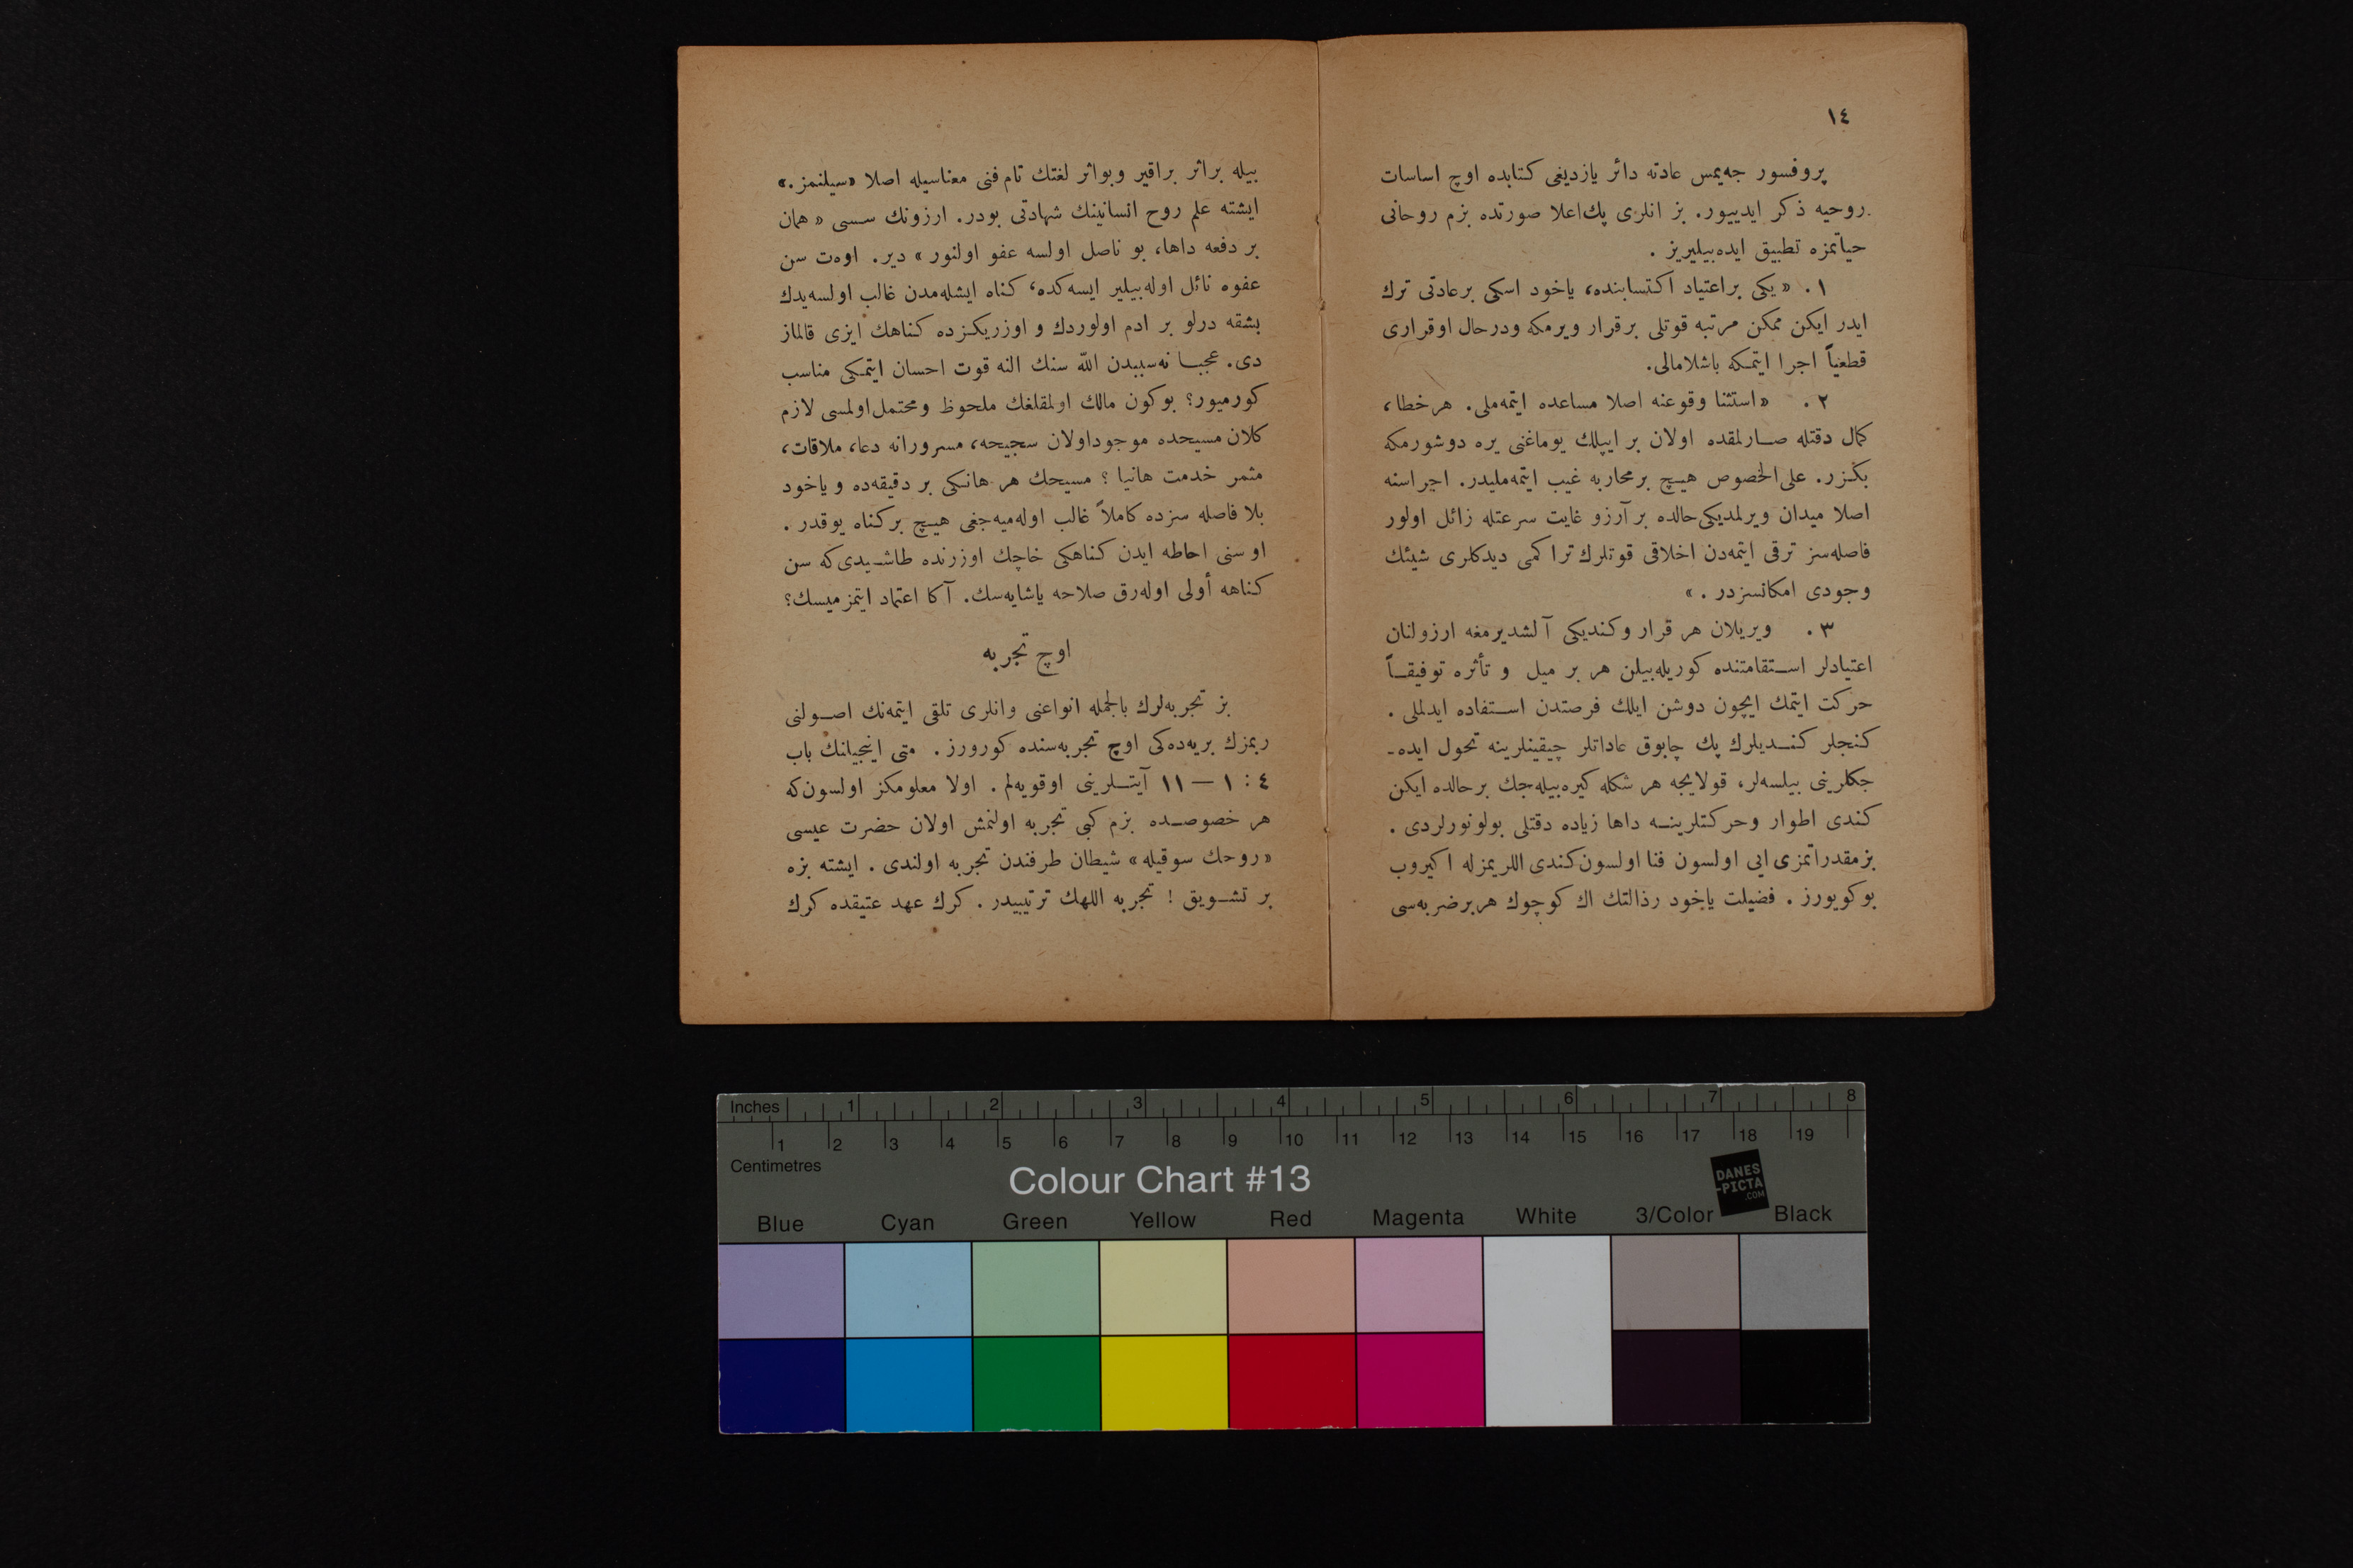 ١٤
پروفسور جه‌یمس عادته دائر یازدیغی کتابده اوچ اساسات
روحیه ذکر ایدییور. بز انلری پك‌اعلا صورتده بزم روحانی
حیاتمزه تطبیق ایده‌بیلیریز .
١ . « یکی براعتیاد اکتسابنده، یاخود اسکی برعادتی ترك
ایدر ایکن ممکن مرتبه قوتلی برقرار ویرمکه ودرحال اوقراری
قطعیاً اجرا ایتمکه باشلامالی.
٢ . « استثنا وقوعنه اصلا مساعده ایتمه‌ملی. هرخطا،
کمال دقتله صارلمقده اولان بر ایپلك یوماغنی یره دوشورمکه
بکزر. علی‌الخصوص هیچ برمحاربه غیب ایتمه‌ملیدر. اجراسنه
اصلا میدان ویرلمدیکی‌حالده برآرزو غایت سرعتله زائل اولور
فاصله‌سز ترقی ایتمه‌دن اخلاقی قوتلرك تراکمی دیدکلری شیئك
وجودی امکانسزدر . »
٣ . ویریلان هر قرار وکندیکی آلشدیرمغه ارزولنان
اعتیادلر استقامتنده کوریله‌بیلن هر بر میل و تأثره توفیقاً
حرکت ایتمك ایچون دوشن ایلك فرصتدن استفاده ایدلملی .
کنجلر کندیلرك پك چابوق عاداتلر چیقینلرینه تحول ایده-
جکلرینی بیلسه‌لر، قولایجه هر شکله کیره‌بیله‌جك برحالده ایکن
کندی اطوار وحرکتلرینه داها زیاده دقتلی بولونورلردی .
بزمقدراتمزی ایی اولسون فنا اولسون‌کندی اللریمزله اکیروب
بوکویورز . فضیلت یاخود رذالتك اك کوچوك هربرضربه‌سی
بیله براثر براقیر وبواثر لغتك تام‌فنی معناسیله اصلا «سیلنمز.»
ایشته علم روح انسانینك شهادتی بودر. ارزونك سسی « همان
بر دفعه داها، بو ناصل اولسه عفو اولنور » دیر. اوه‌ت سن
عفوه نائل اوله‌بیلیر ایسه‌کده، کناه ایشله‌مدن غالب اولسه‌یدك
بشقه درلو بر ادم اولوردك و اوزریکزده کناهك ایزی قالماز
دی. عجبا نه‌سببدن اللّه سنك النه قوت احسان ایتمکی مناسب
کورمیور؟ بوکون مالك اولمقلغك ملحوظ ومحتمل‌اولمسی لازم
کلان مسیحده موجوداولان سجیحه، مسرورانه دعا، ملاقات،
مثمر خدمت هانیا ؟ مسیحك هر هانکی بر دقیقه‌ده و یاخود
بلا فاصله سزده کاملاً غالب اوله‌میه‌جغی هیچ برکناه یوقدر .
او سنی احاطه ایدن کناهکی خاچك اوزرنده طاشیدی‌که سن
کناهه أولی اوله‌رق صلاحه یاشایه‌سك. آکا اعتماد ایتمز‌میسك؟
اوچ تجربه
بز تجربه‌لرك بالجمله انواعنی وانلری تلقی ایتمه‌نك اصولنی
ربمزك بریه‌ده‌کی اوچ تجربه‌سنده کورورز . متی اینجیلنك باب
٤ : ١ — ١١ آیتلرینی اوقویه‌لم . اولا معلومکز اولسون‌که
هر خصوصده بزم کبی تجربه اولنمش اولان حضرت عیسی
«روحك سوقیله» شیطان طرفندن تجربه اولندی . ایشته بزه
بر تشویق ! تجربه اللهك ترتیبیدر . کرك عهد عتیقده کرك
Inches 1 2 3 4 5 6 7 8
1 2 3 4 5 6 7 8 9 10 11 12 13 14 15 16 17 18 19
Centimetres
Colour Chart #13
DANES
-PICTA
.COM
Blue Cyan Green Yellow Red Magenta White 3/Color Black